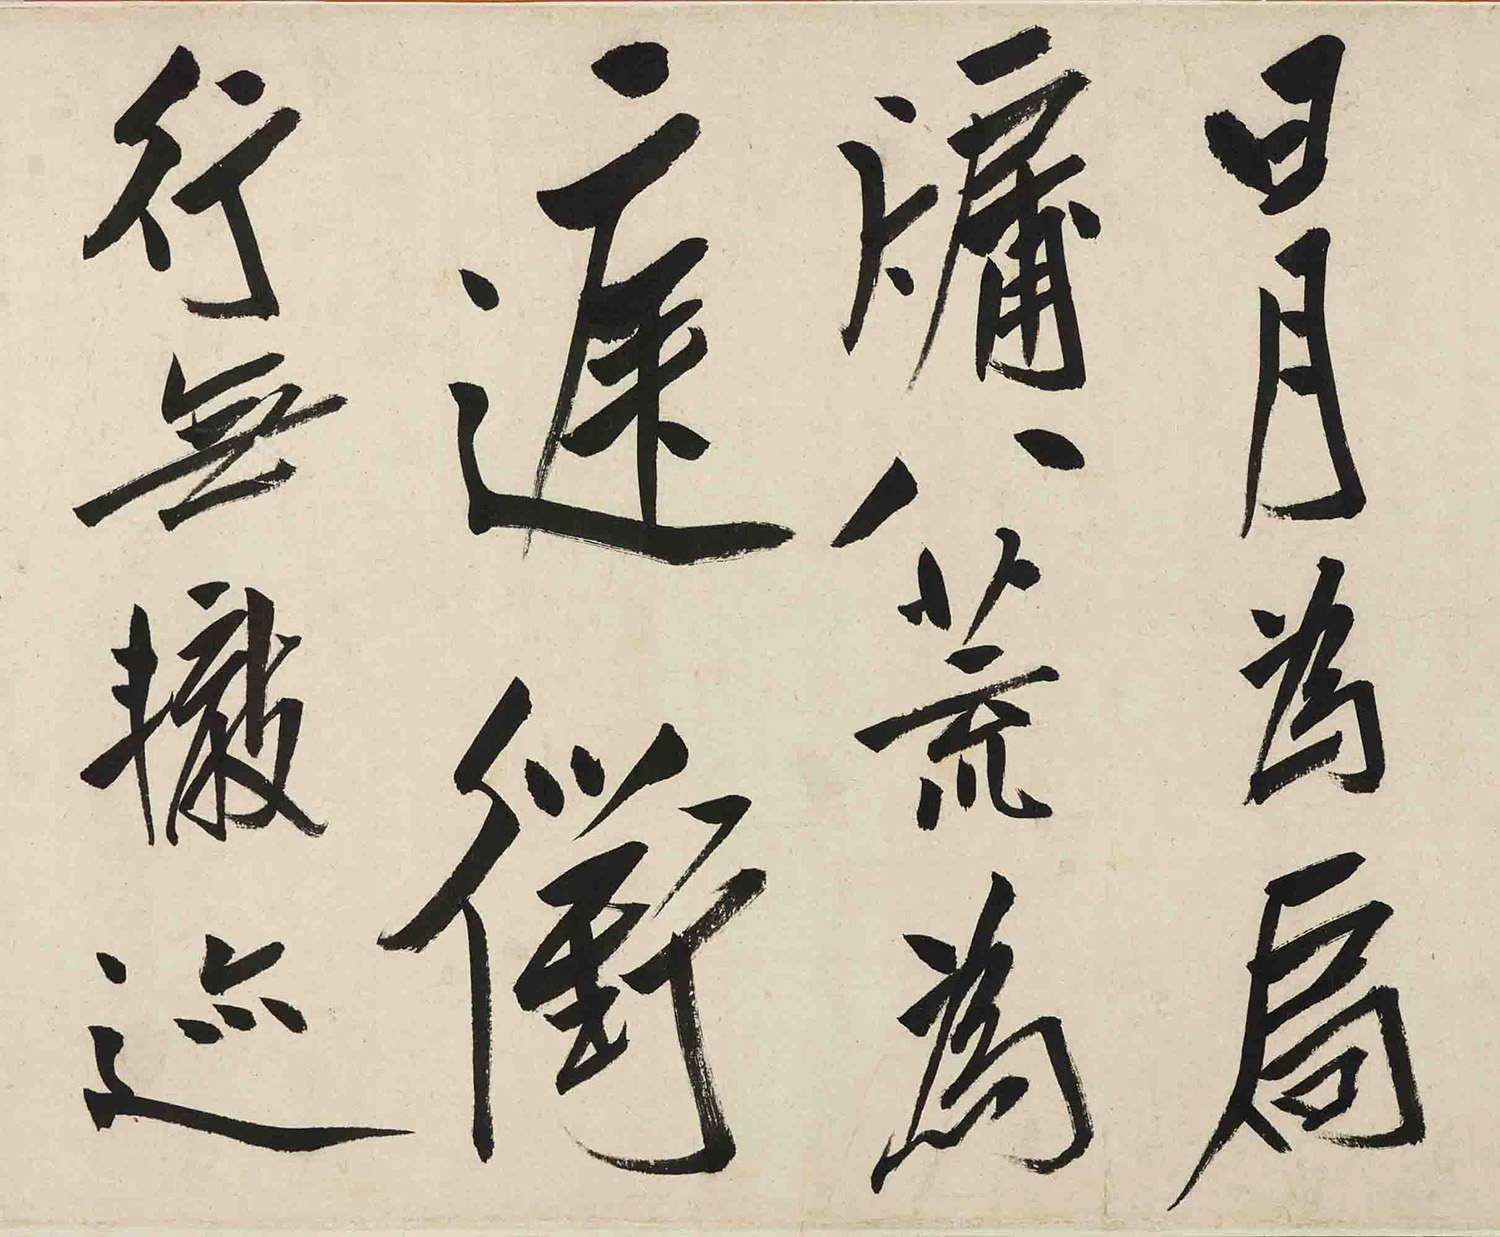 日月為扃
牖八荒為
庭衢
行無轍迹